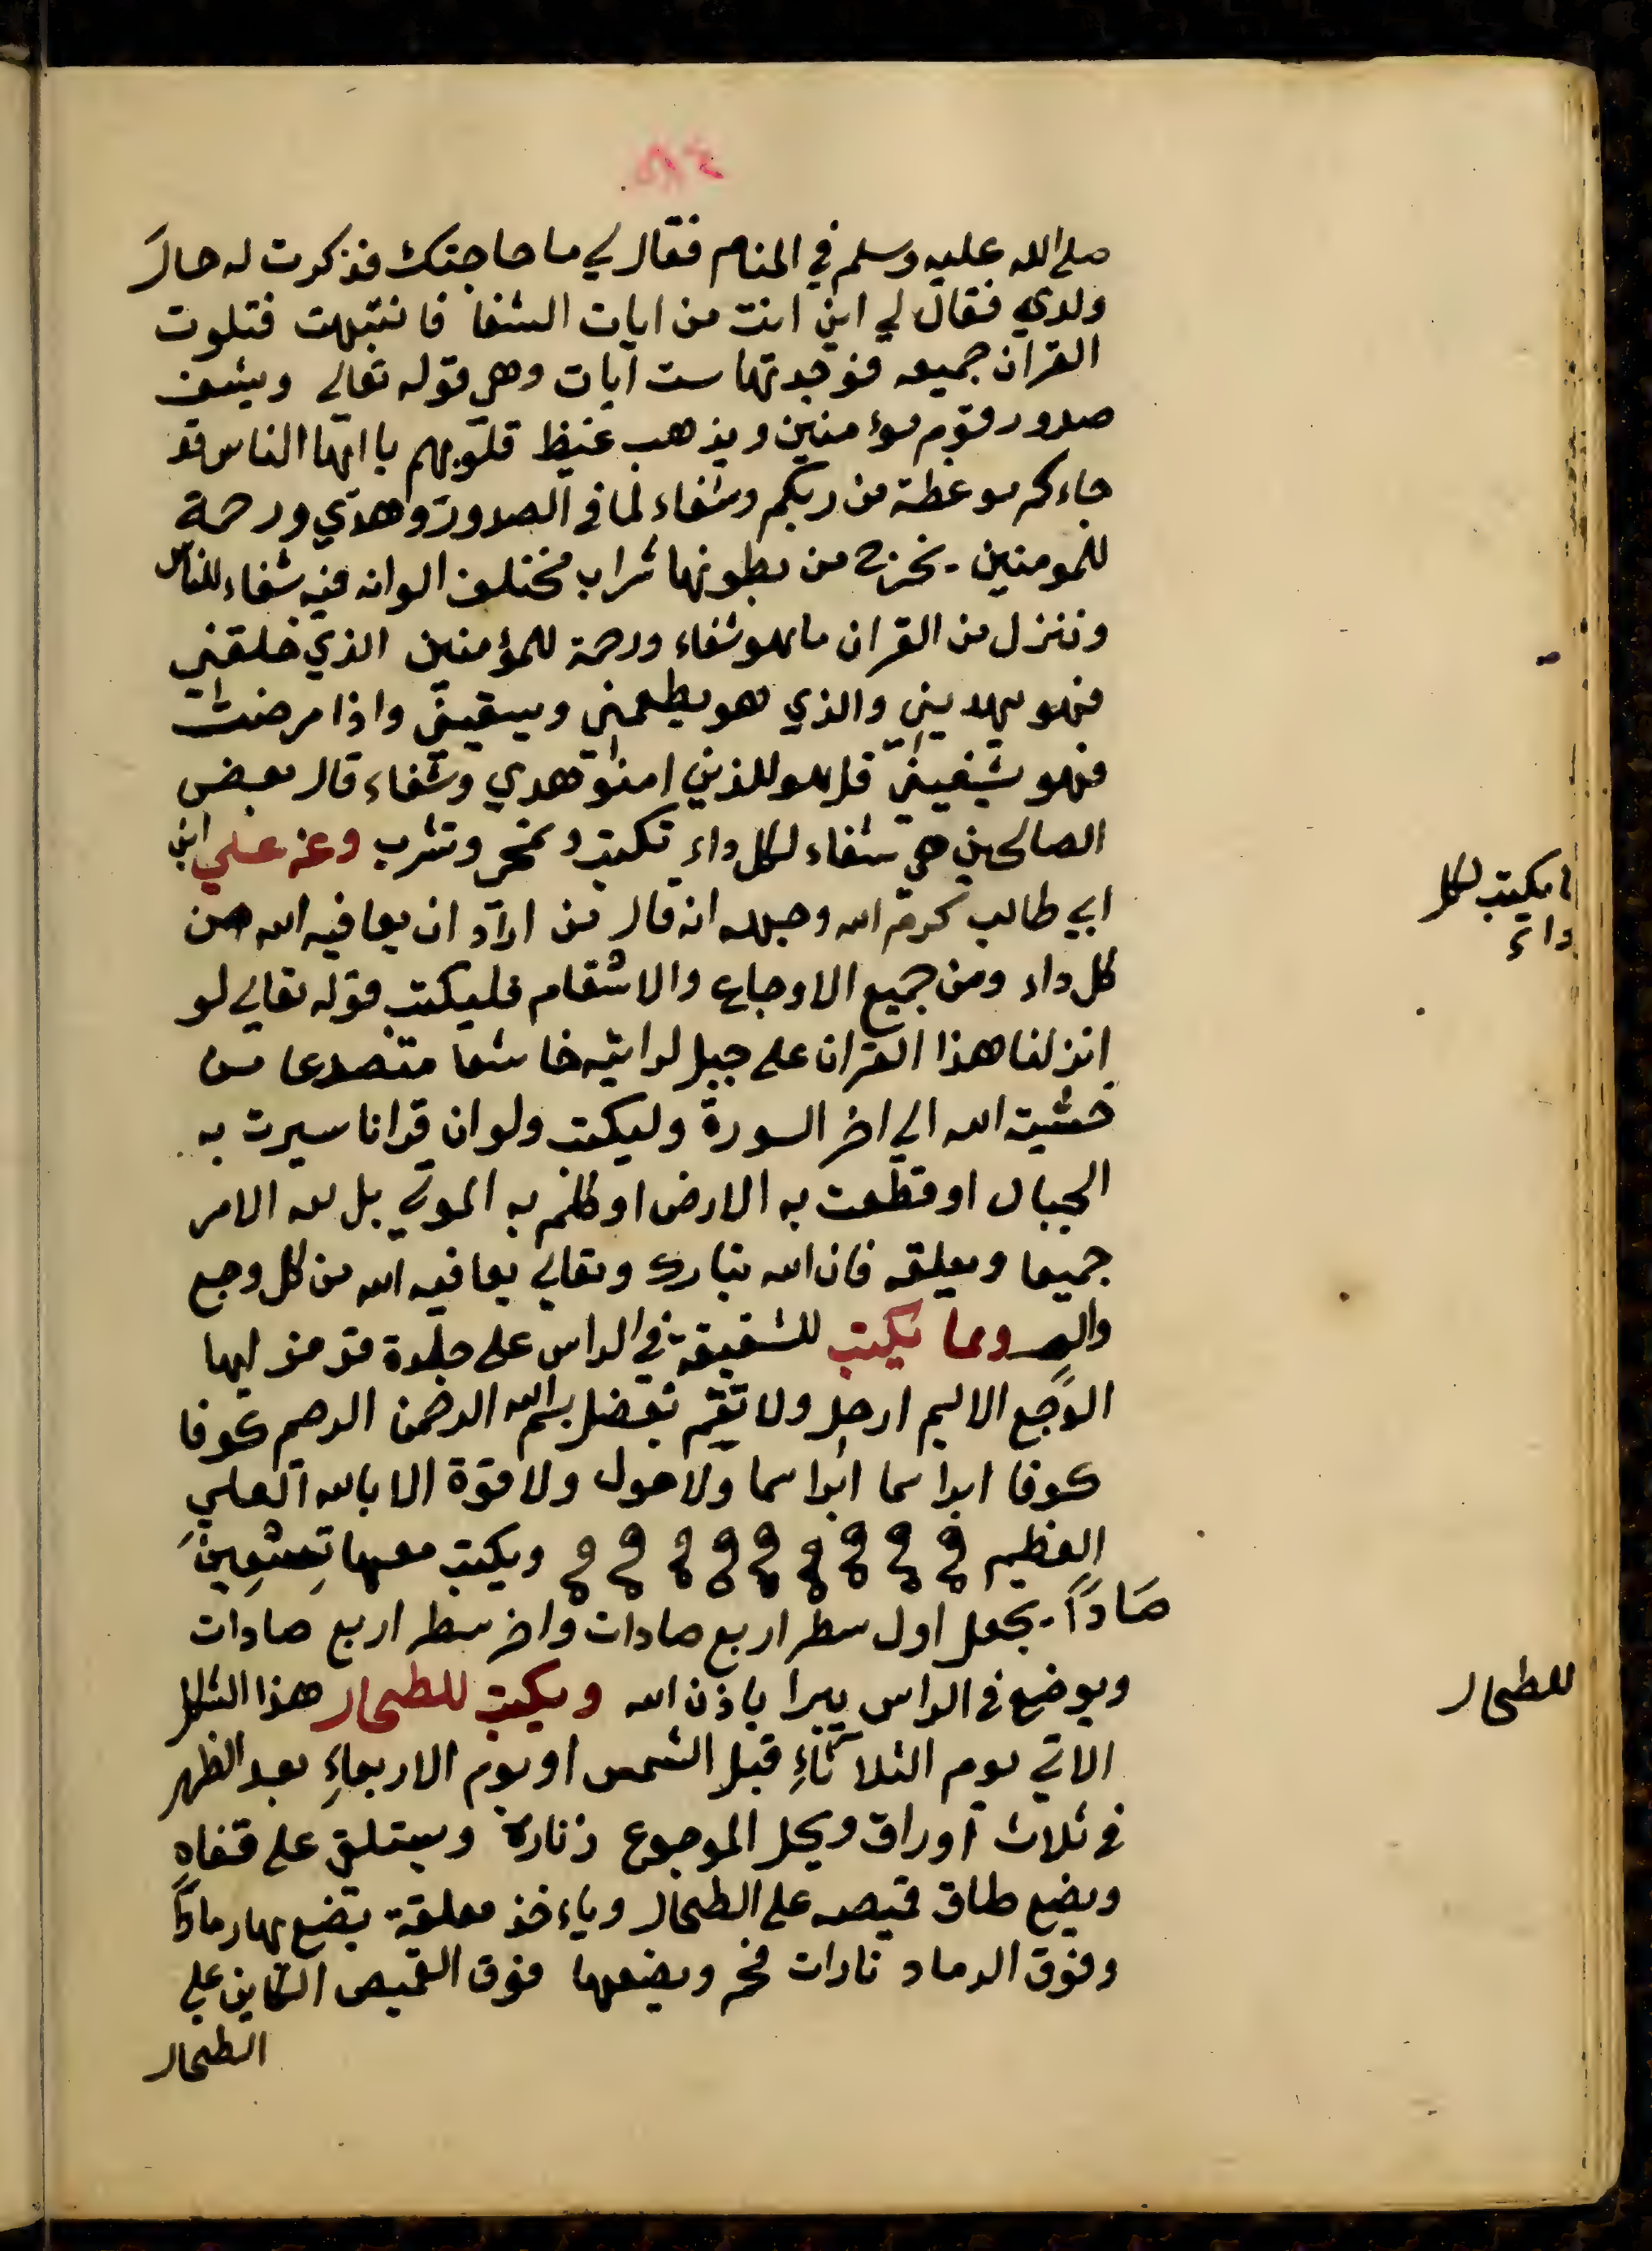 صلى الله عليه وسلم في المنام فقال لي ما حاجتك فذكرت له حال
ولدي فقال لي اين انت من ايات الشفا فانتبهت فتلوت
القران جميعه فوجدتها ست آيات وهي قوله تعالى ويشف
صدور قوم مؤمنين ويذهب غيظ قلوبهم يا ايها الناس قد
جاءكم موعظة من ربكم وشفاء لما في الصدور وهدي ورحمة
للمومنين. يخرج من بطونها شراب مختلف الوانه فيه شفاء للناس
وننزل من القران ما هو شفاء ورحمة للمؤمنين الذي خلقني
فهو يهديني والذي هو يطعمني ويسقيني واذا مرضت
فهو يشفيني قل هو للذين امنوا هدي وشفاء قال بعض
الصالحين هي شفاء لكل داء تكتب وتمحى وتشرب وعن علي ابن
ابي طالب كرم الله وجهه انه قال من اراد ان يعافيه الله من
كل داء ومن جميع الاوجاع والاسقام فليكتب قوله تعالى لو
انزلنا هذا القران على جبل لرايته خاشعا متصدعا من
خشية الله الي اخر السورة وليكتب ولو ان قرانا سيرت به
الجبال او قطعت به الارض او كلم به الموتي بل لله الامر
جميعا ويعلقه فان الله تبارك وتعالى يعافيه الله من كل وجع
والم ومما يكتب للشقيقة في الراس على جلدة قد مذ ايها
الوجع الاليم ارحل ولا تقم بفضل بسم الله الرحمن الرحيم كوفا
كوفا ابراسما ابراسما ولا حول ولا قوة الا بالله العلي
العظيم ويكتب معها تسعين
صادًا. يجعل اول سطر اربع صادات واخر سطر اربع صادات
ويوضع في الراس يبرا باذن الله ويكتب للطحال هذا الشكل
الاتي يوم الثلاثاءِ قبل الشمس او يوم الاربعاءِ بعد الظهر
في ثلاث اوراق ويحل الموجوع زناره ويستلقي على قفاه
ويضع طاق قميصه على الطحال وياءخذ معلقة يضع بها رمادًا
وفوق الرماد نارات فحم ويضعها فوق القميص الكاين علي
الطحال
ما يكتب لكل
داء
للطحال